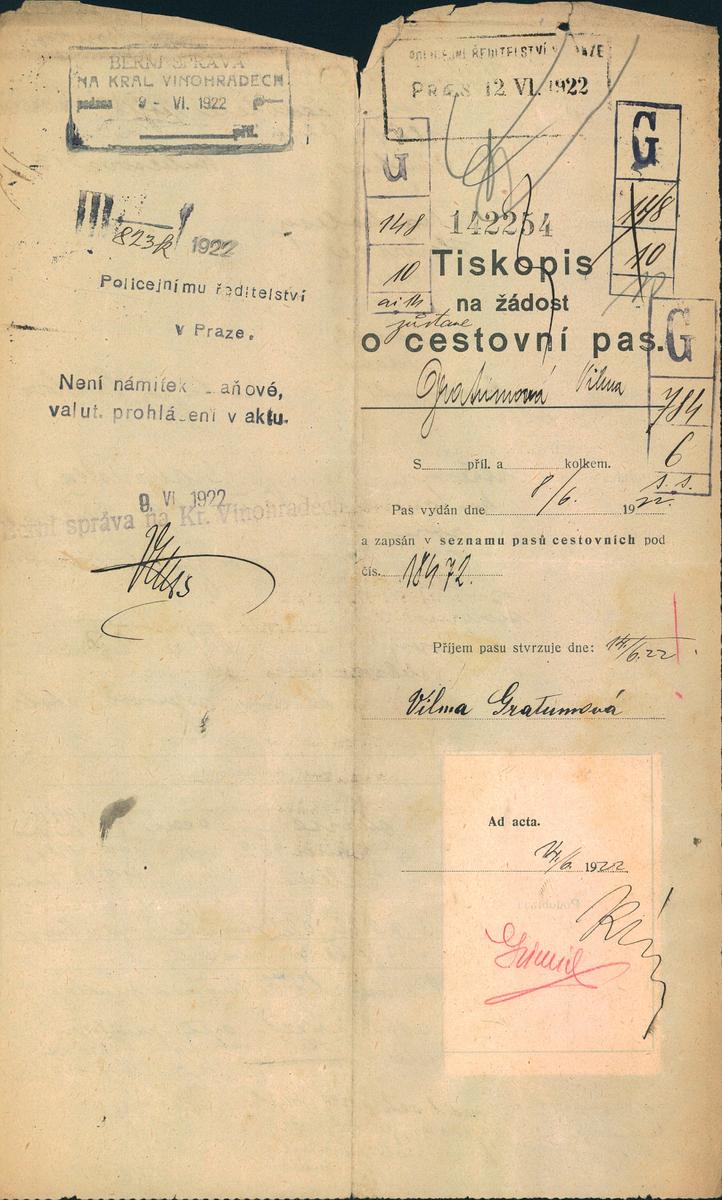 BERNÍ SPRÁVA
NA KRÁL VINOHRADECH
podáno 9 - VI. 1922
příl.
III 823k 1922
Policejnímu ředitelství
v Praze.
Není námitek daňové,
valut. prohlášení v aktu.
9. VI. 1922
Berní správa na Kr. Vinohradech
POLICEJNÍ ŘEDITELSTVÍ V PRAZE
PRES 12 VI. 1922
G
148
10
G
148
10
142254
Tiskopis
na žádost
zůstane
o cestovní pas.
G
784
6
s. s.
Gratumová Vilma
S příl. a kolkem.
Pas vydán dne 8/6. 1922.
a zapsán v seznamu pasů cestovních pod
čís. 18472.
Příjem pasu stvrzuje dne: 14/6. 22.
Vilma Gratumová
Ad acta.
14/6. 1922